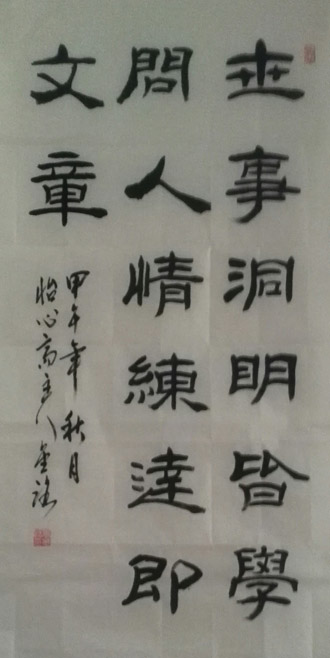 世事洞明皆學
問人情練達即
文章
甲午年秋月
怡心齋主人金謠